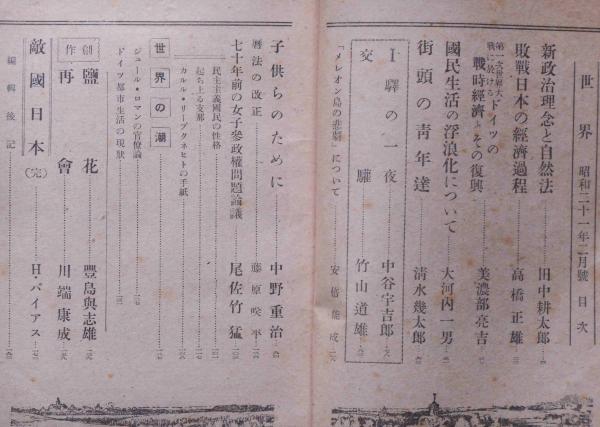 世界 昭和二十一年二月號 目次
新政治理念と自然法 田中耕太郎
敗戰日本の經濟過程 高橋正雄
第一次世界大戰に於ける ドイツの戰時經濟とその復興 美濃部亮吉
國民生活の浮浪化について 大河內一男
街頭の靑年達 淸水幾太郎
I驛の一夜 中谷宇吉郎
交驩 竹山道雄
「メレオン島の悲劇」について 安倍能成
子供らのために 中野重治
曆法の改正 藤原咲平
七十年前の女子參政權問題論議 尾佐竹猛
民主主義國民の性格
起ち上る支那
カルル・リープクネヒトの手紙
世界の潮
ジュール・ロマンの官僚論
ドイツ都市生活の現狀
創作
鹽花 豐島與志雄
再會 川端康成
敵國日本(完) H・バイアス
編輯後記